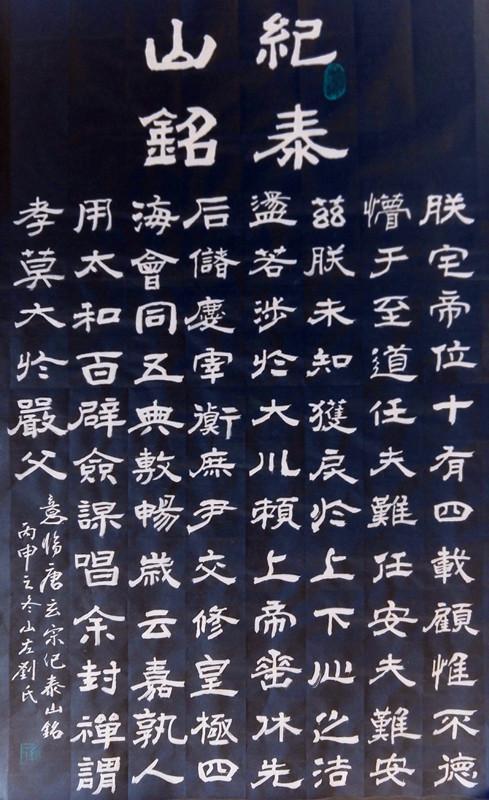 紀泰
山銘
朕宅帝位十有四載顧惟不德
懵于至道任夫難任安夫難安
茲朕未知獲戾於上下心之浩
盪若涉於大川賴上帝垂休先
后儲慶宰衡庶尹交修皇極四
海會同五典敷暢歲云嘉孰人
用太和百辟僉謀唱余封禪謂
孝莫大於嚴父
意臨唐玄宗紀泰山銘
丙申之冬山左劉氏